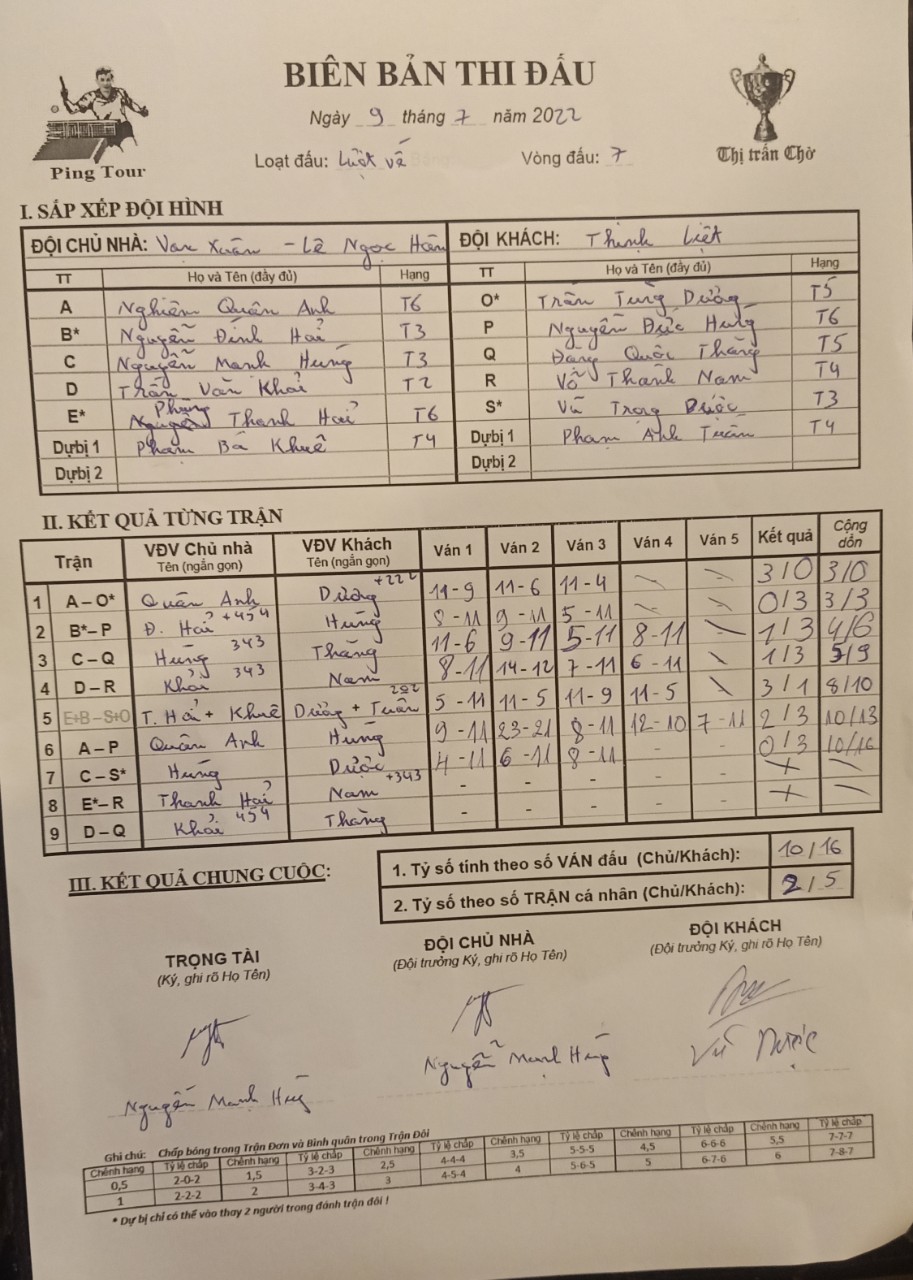 BIÊN BẢN THI ĐẤU
Ngày 9 tháng 7 năm 2022
Loạt đấu: Lượt về Vòng đấu: 7
Ping Tour
Thị trấn Chờ
I. SẮP XẾP ĐỘI HÌNH
ĐỘI CHỦ NHÀ: Vạn Xuân - Lê Ngọc Hân ĐỘI KHÁCH: Thịnh Liệt
TT Họ và Tên (đầy đủ) Hạng TT Họ và Tên (đầy đủ) Hạng
A Nghiêm Quân Anh T6 O* Trần Tùng Dương T5
B* Nguyễn Đình Hải T3 P Nguyễn Đức Hưng T6
C Nguyễn Mạnh Hùng T3 Q Đặng Quốc Thắng T5
D Trần Văn Khải T2 R Võ Thanh Nam T4
E* Phùng Thanh Hải T6 S* Vũ Trọng Được T3
Dự bị 1 Phạm Bá Khuê T4 Dự bị 1 Phạm Anh Tuấn T4
Dự bị 2 Dự bị 2
II. KẾT QUẢ TỪNG TRẬN
Trận VĐV Chủ nhà Tên (ngắn gọn) VĐV Khách Tên (ngắn gọn) Ván 1 Ván 2 Ván 3 Ván 4 Ván 5 Kết quả Cộng dồn
1 A – O* Quân Anh Dương +222 11-9 11-6 11-4 \ \ 3/0 3/0
2 B* – P Đ. Hải +454 Hưng 8-11 9-11 5-11 0/3 3/3
3 C – Q Hùng 343 Thắng 11-6 9-11 5-11 8-11 \ 1/3 4/6
4 D – R Khải 343 Nam 8-11 14-12 7-11 6-11 \ 1/3 5/9
5 E+B – S+O T. Hải + Khuê Dương + Tuấn 202 5-11 11-5 11-9 11-5 \ 3/1 8/10
6 A – P Quân Anh Hưng 9-11 23-21 8-11 12-10 7-11 2/3 10/13
7 C – S* Hùng Được 4-11 6-11 8-11 - - 0/3 10/16
8 E* – R Thanh Hải Nam +343 - - - - - × \
9 D – Q Khải 454 Thắng - - - - - × \
III. KẾT QUẢ CHUNG CUỘC:
1. Tỷ số tính theo số VÁN đấu (Chủ/Khách): 10/16
2. Tỷ số theo số TRẬN cá nhân (Chủ/Khách): 2/5
TRỌNG TÀI ĐỘI CHỦ NHÀ ĐỘI KHÁCH
(Ký, ghi rõ Họ Tên) (Đội trưởng Ký, ghi rõ Họ Tên) (Đội trưởng Ký, ghi rõ Họ Tên)
Nguyễn Mạnh Hùng Nguyễn Mạnh Hùng Vũ Được
Ghi chú: Chấp bóng trong Trận Đơn và Bình quân trong Trận Đôi
Chênh hạng Tỷ lệ chấp Chênh hạng Tỷ lệ chấp Chênh hạng Tỷ lệ chấp Chênh hạng Tỷ lệ chấp Chênh hạng Tỷ lệ chấp Chênh hạng Tỷ lệ chấp
0,5 2-0-2 1,5 3-2-3 2,5 4-4-4 3,5 5-5-5 4,5 6-6-6 5,5 7-7-7
1 2-2-2 2 3-4-3 3 4-5-4 4 5-6-5 5 6-7-6 6 7-8-7
* Dự bị chỉ có thể vào thay 2 người trong đánh trận đôi !